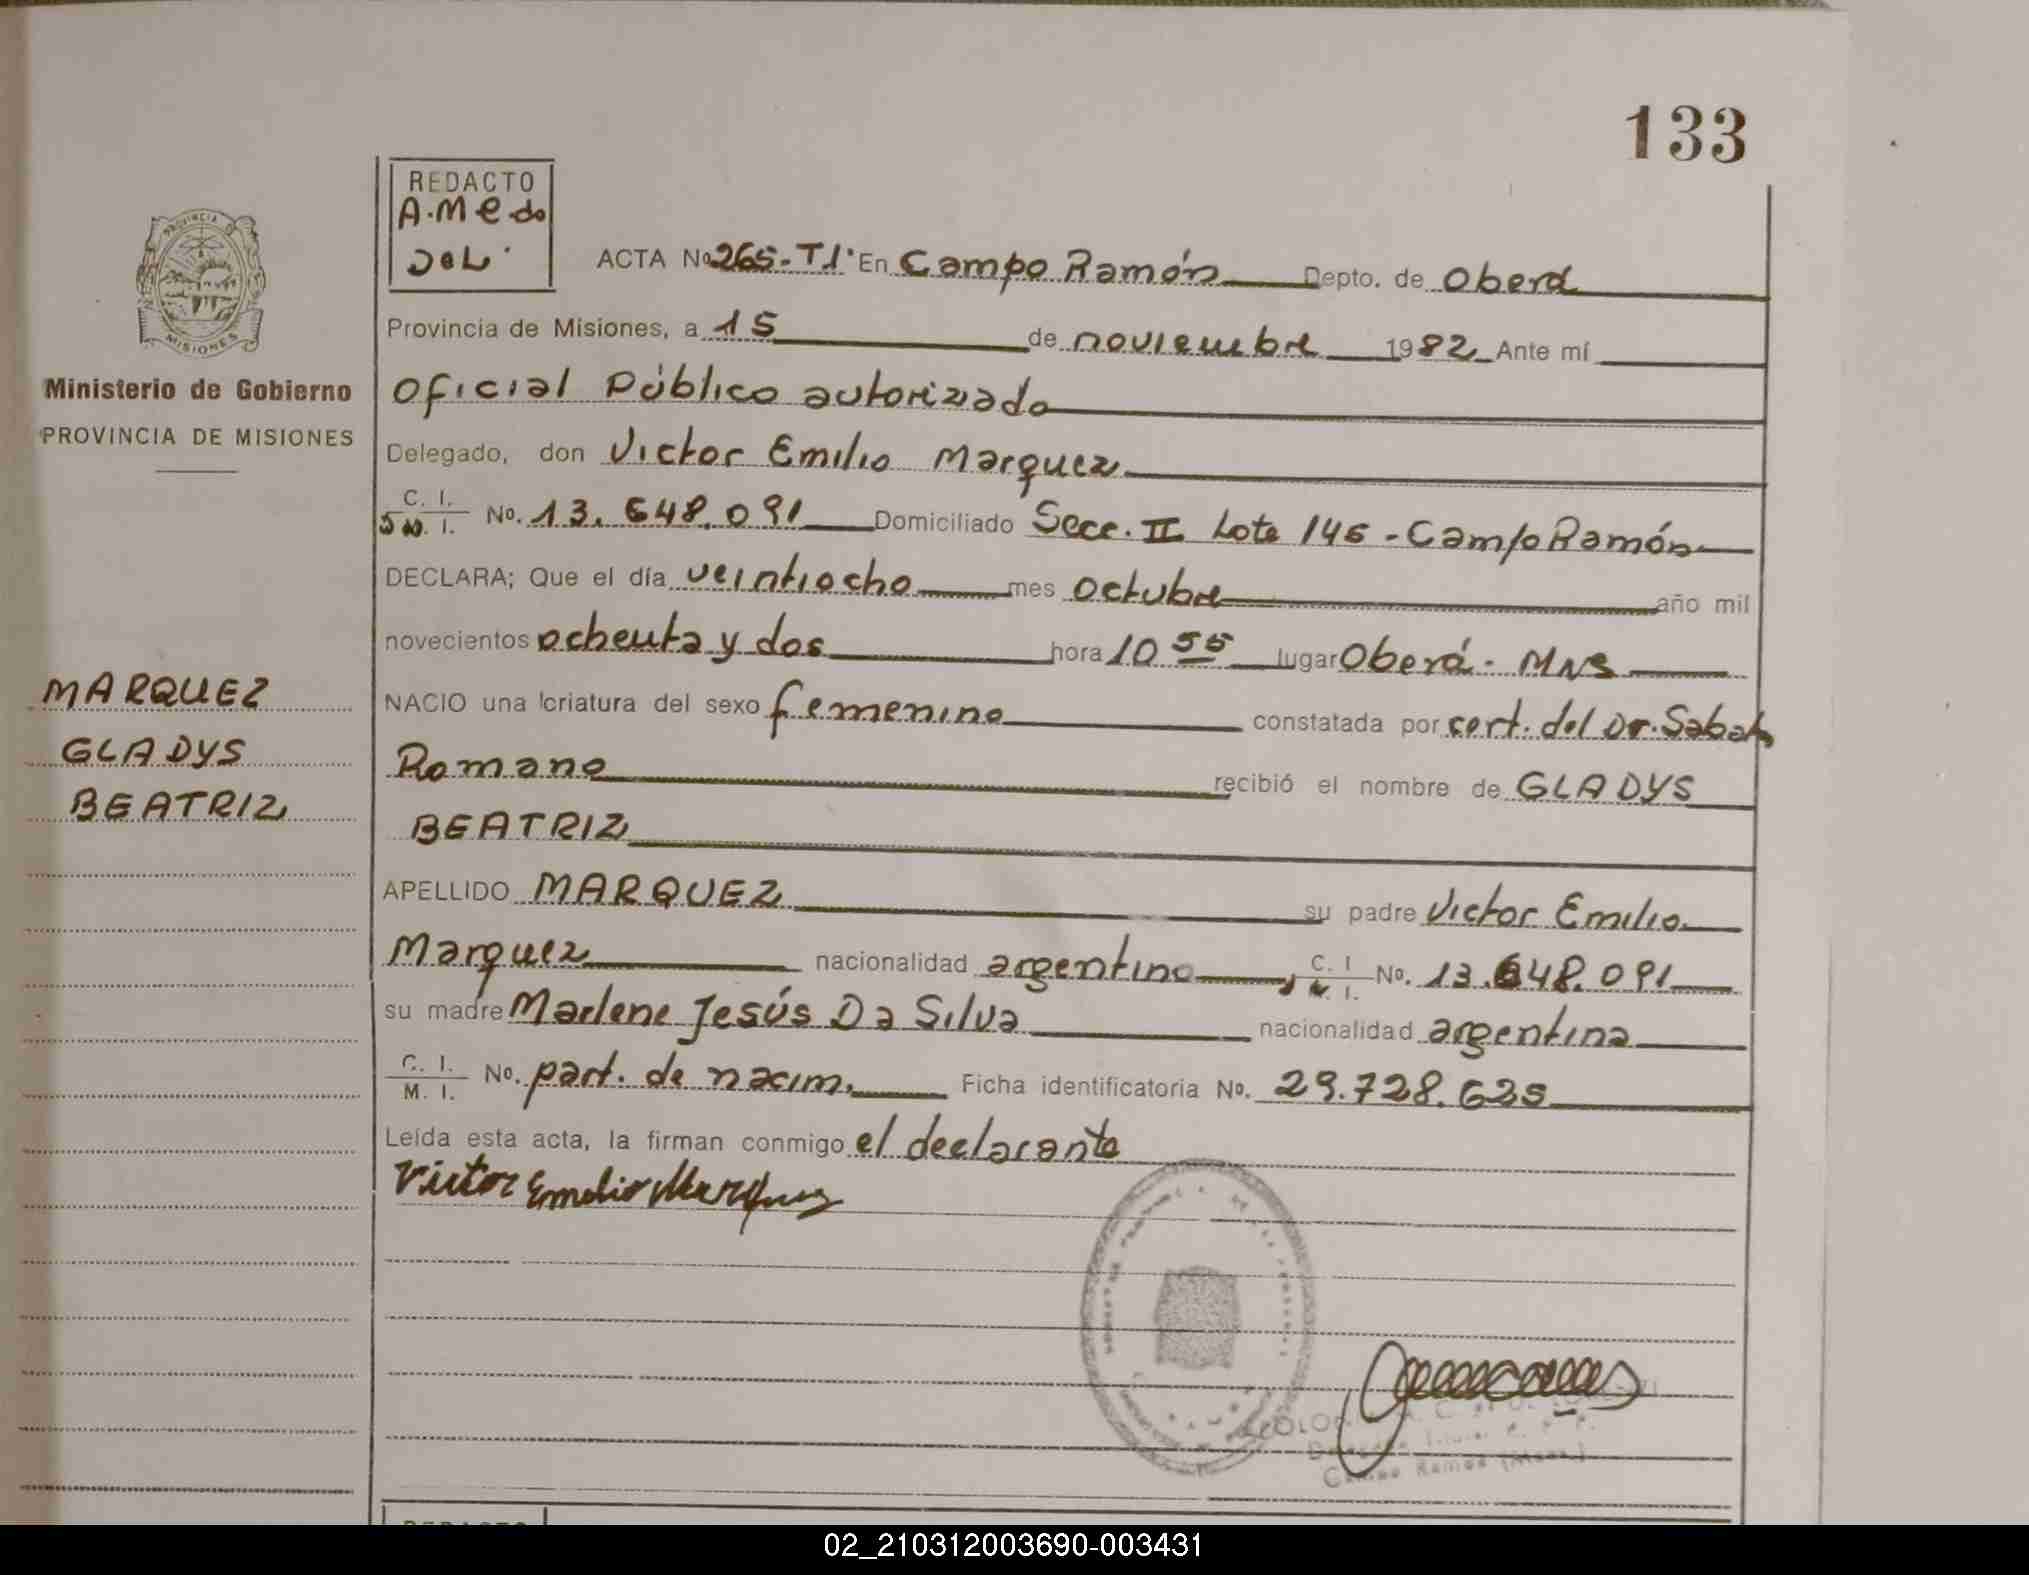 133
REDACTO
A. Medo
Del.
ACTA Nº 265-T1º En Campo Ramón Depto. de Oberá
Provincia de Misiones, a 15 de noviembre 1982 Ante mí
Oficial Público autorizado
Delegado, don Victor Emilio Marquez
C. I. D.N. I. No. 13.648.091 Domiciliado Secc. II Lote 146 - Campo Ramón
DECLARA; Que el día veintiocho mes octubre año mil
novecientos ochenta y dos hora 10 55 lugar Oberá - MNS
NACIO una criatura del sexo femenino constatada por cert. del Dr. Sabato
Romano recibió el nombre de GLADYS
BEATRIZ
APELLIDO MARQUEZ su padre Victor Emilio
Marquez nacionalidad argentino C. I No. 13.648.091
su madre Marlene Jesús Da Silva nacionalidad argentina
C. I. M. I. No. part. de nacim. Ficha identificatoria No. 29.728.625
Leída esta acta, la firman conmigo el declarante
Victor Emilio Marquez
Campo Ramon
PROVINCIA DE
MISIONES
Ministerio de Gobierno
PROVINCIA DE MISIONES
MARQUEZ
GLADYS
BEATRIZ
REDACTO
02_210312003690-003431